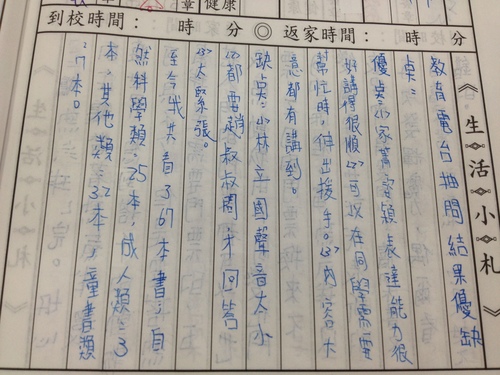 章 健康
到校時間： 時 分 ◎ 返家時間： 時 分
《生活小札》
教育電台抽問結果優缺
奌：
優奌：<1>家萱、姿穎表達能力很
好講得很順<2>可以在同學需要
幫忙時，伸出援手。<3>內容大
意都有講到。
缺奌：<1>林立國聲音太小
<2>都要趙叔叔問，才回答
<3>太緊張。
至今我共看了67本書；自
然科學類：25本，成人類：3
本，其他類：32本，童書類
：7本。